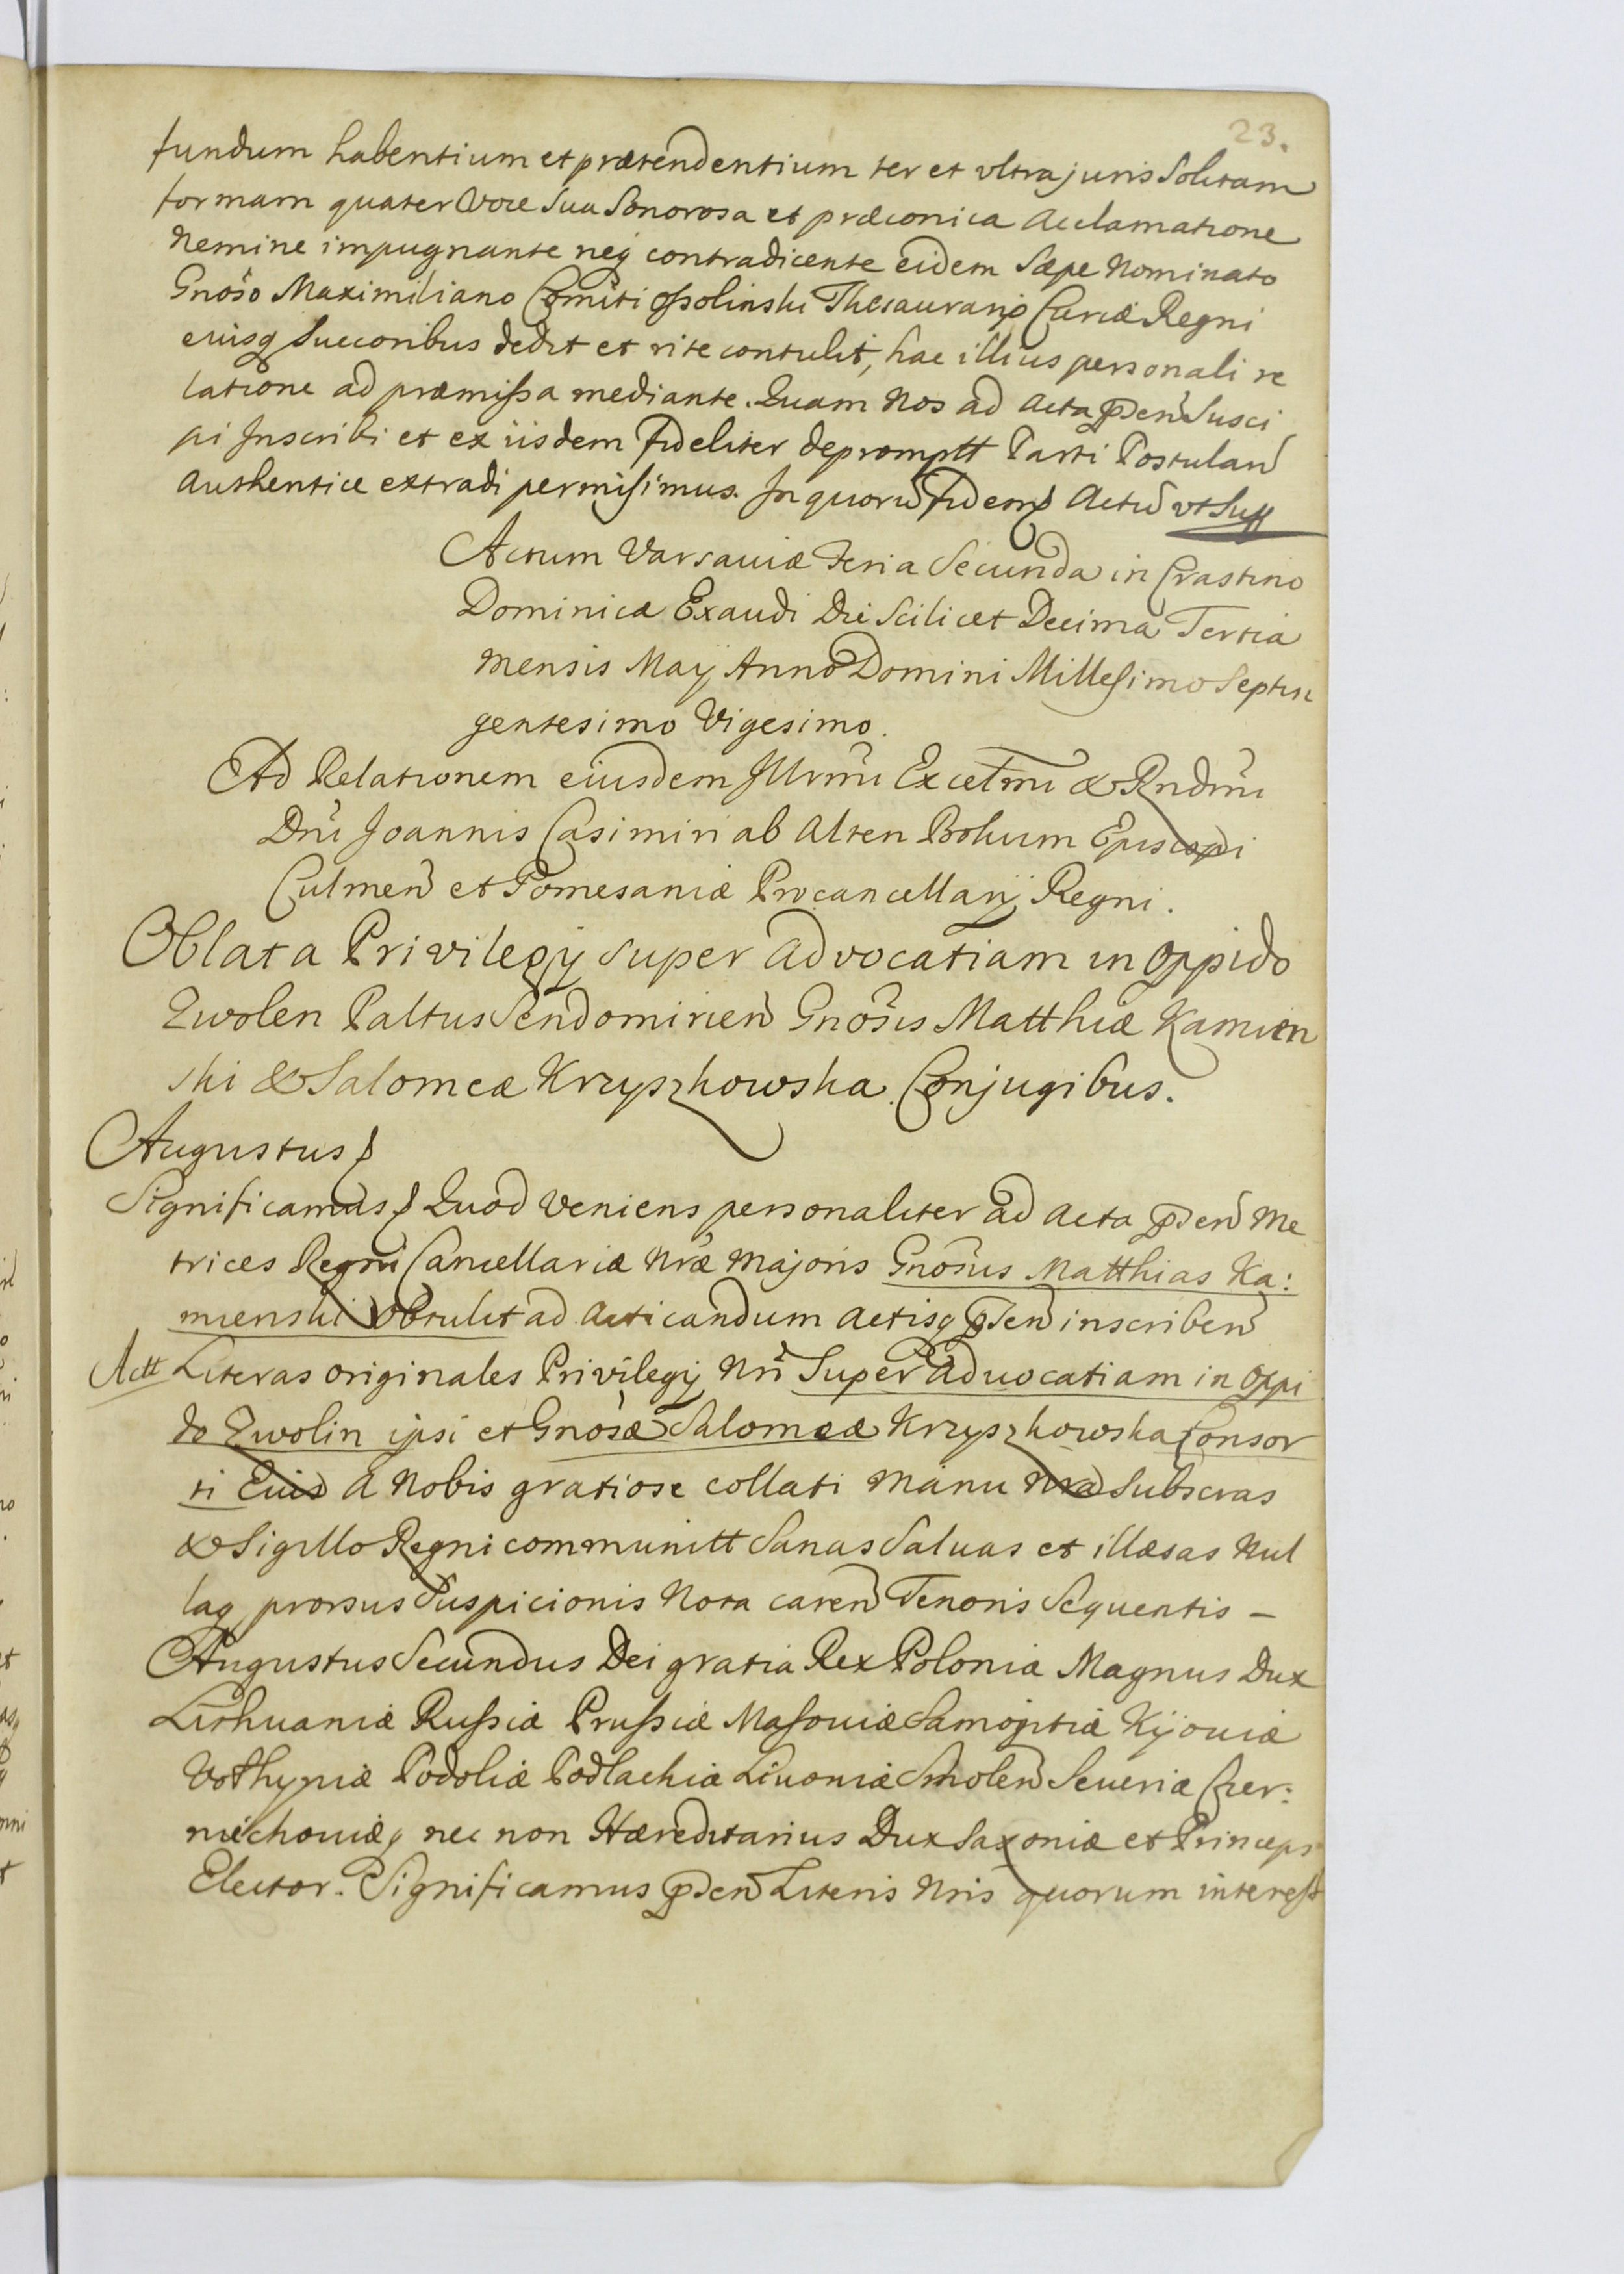 23.
fundum habentium et prætendentium ter et vltra juris Solitam
formam quater Voce Sua Sonorosa et præconica Acclamatione
Nemine impugnante neq contradicente eidem Sæpe Nominato
Gnoso Maximiliano Comiti Ossolinski Thesaurario Curiæ Regni
eiusq Succoribus dedit et rite contulit, hac illius personali re
latione ad præmissa mediante. Quam Nos ad Acta pden Susci
pi Inscribi et ex iisdem fideliter depromptt Parti Postulan
Authentice extradi permisimus. In quorũ fidem Actũ vt Sup
Actum Varsaviæ Feria Secunda in Crastino
Dominicæ Exaudi Die Scilicet Decima Tertia
Mensis Maij Anno Domini Millesimo Septin
gentesimo Vigesimo.
Ad Relationem eiusdem Illrmi Excelmi & Rndmi
Dni Joannis Casimiri ab Alten Bokum Episcopi
Culmen et Pomesaniæ Procancellarij Regni.
Oblata Privilegij super Advocatiam in Oppido
Zwolen Paltus Sendomirien Gnosis Matthiæ Kamien
ski & Salomeæ Krzyszkowska Conjugibus.
Augustus
Significamus Quod Veniens personaliter ad Acta pden Me
trices Regni Cancellariæ Nræ Majoris Gnosus Matthias Ka:
mienski Obtulit ad Acticandum Actisq pden inscriben
Actt Literas originales Privilegij Nri Super Aduocatiam in Oppi
do Zwolin ipsi et Gnosæ Salomeæ Krzyszkowska Consor
ti Eius A Nobis gratiose collati Manu Nra Subscras
& Sigillo Regni communitt Sanas Saluas et illæsas Nul
laq prorsus Suspicionis Nota caren Tenoris Sequentis –
Augustus Secundus Dei gratia Rex Poloniæ Magnus Dux
Lithuaniæ Russiæ Prussiæ Masouiæ Samogitiæ Kijouiæ
Volhyniæ Podoliæ Podlachiæ Liuoniæ Smolen Seueriæ Czer:
niechouiæq nec non Hæreditarius Dux Saxoniæ et Princeps
Elector. Significamus pden Literis Nris quorum interest